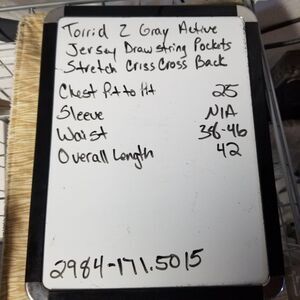 Torrid 2 Gray Active
Jersey Drawstring Pockets
Stretch Criss Cross Back
Chest Pt to Pt 25
Sleeve N/A
Waist 38-46
Overall Length 42
2984-171.5015